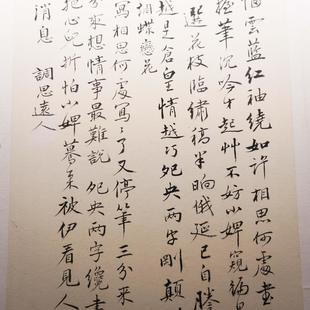 雲藍紅袖繞如許相思何處畫
筆沉吟半起艸不妨小婢窺
選花枝臨繡稿半晌俄延已自謄
越是倉皇情越巧夗央兩字剛顛
蝶戀花
寫相思何處寫寫了又停筆三分來
分來想情事最難說夗央兩字纔書
把心兒折怕小婢驀來被伊看見人
消息 調思遠人